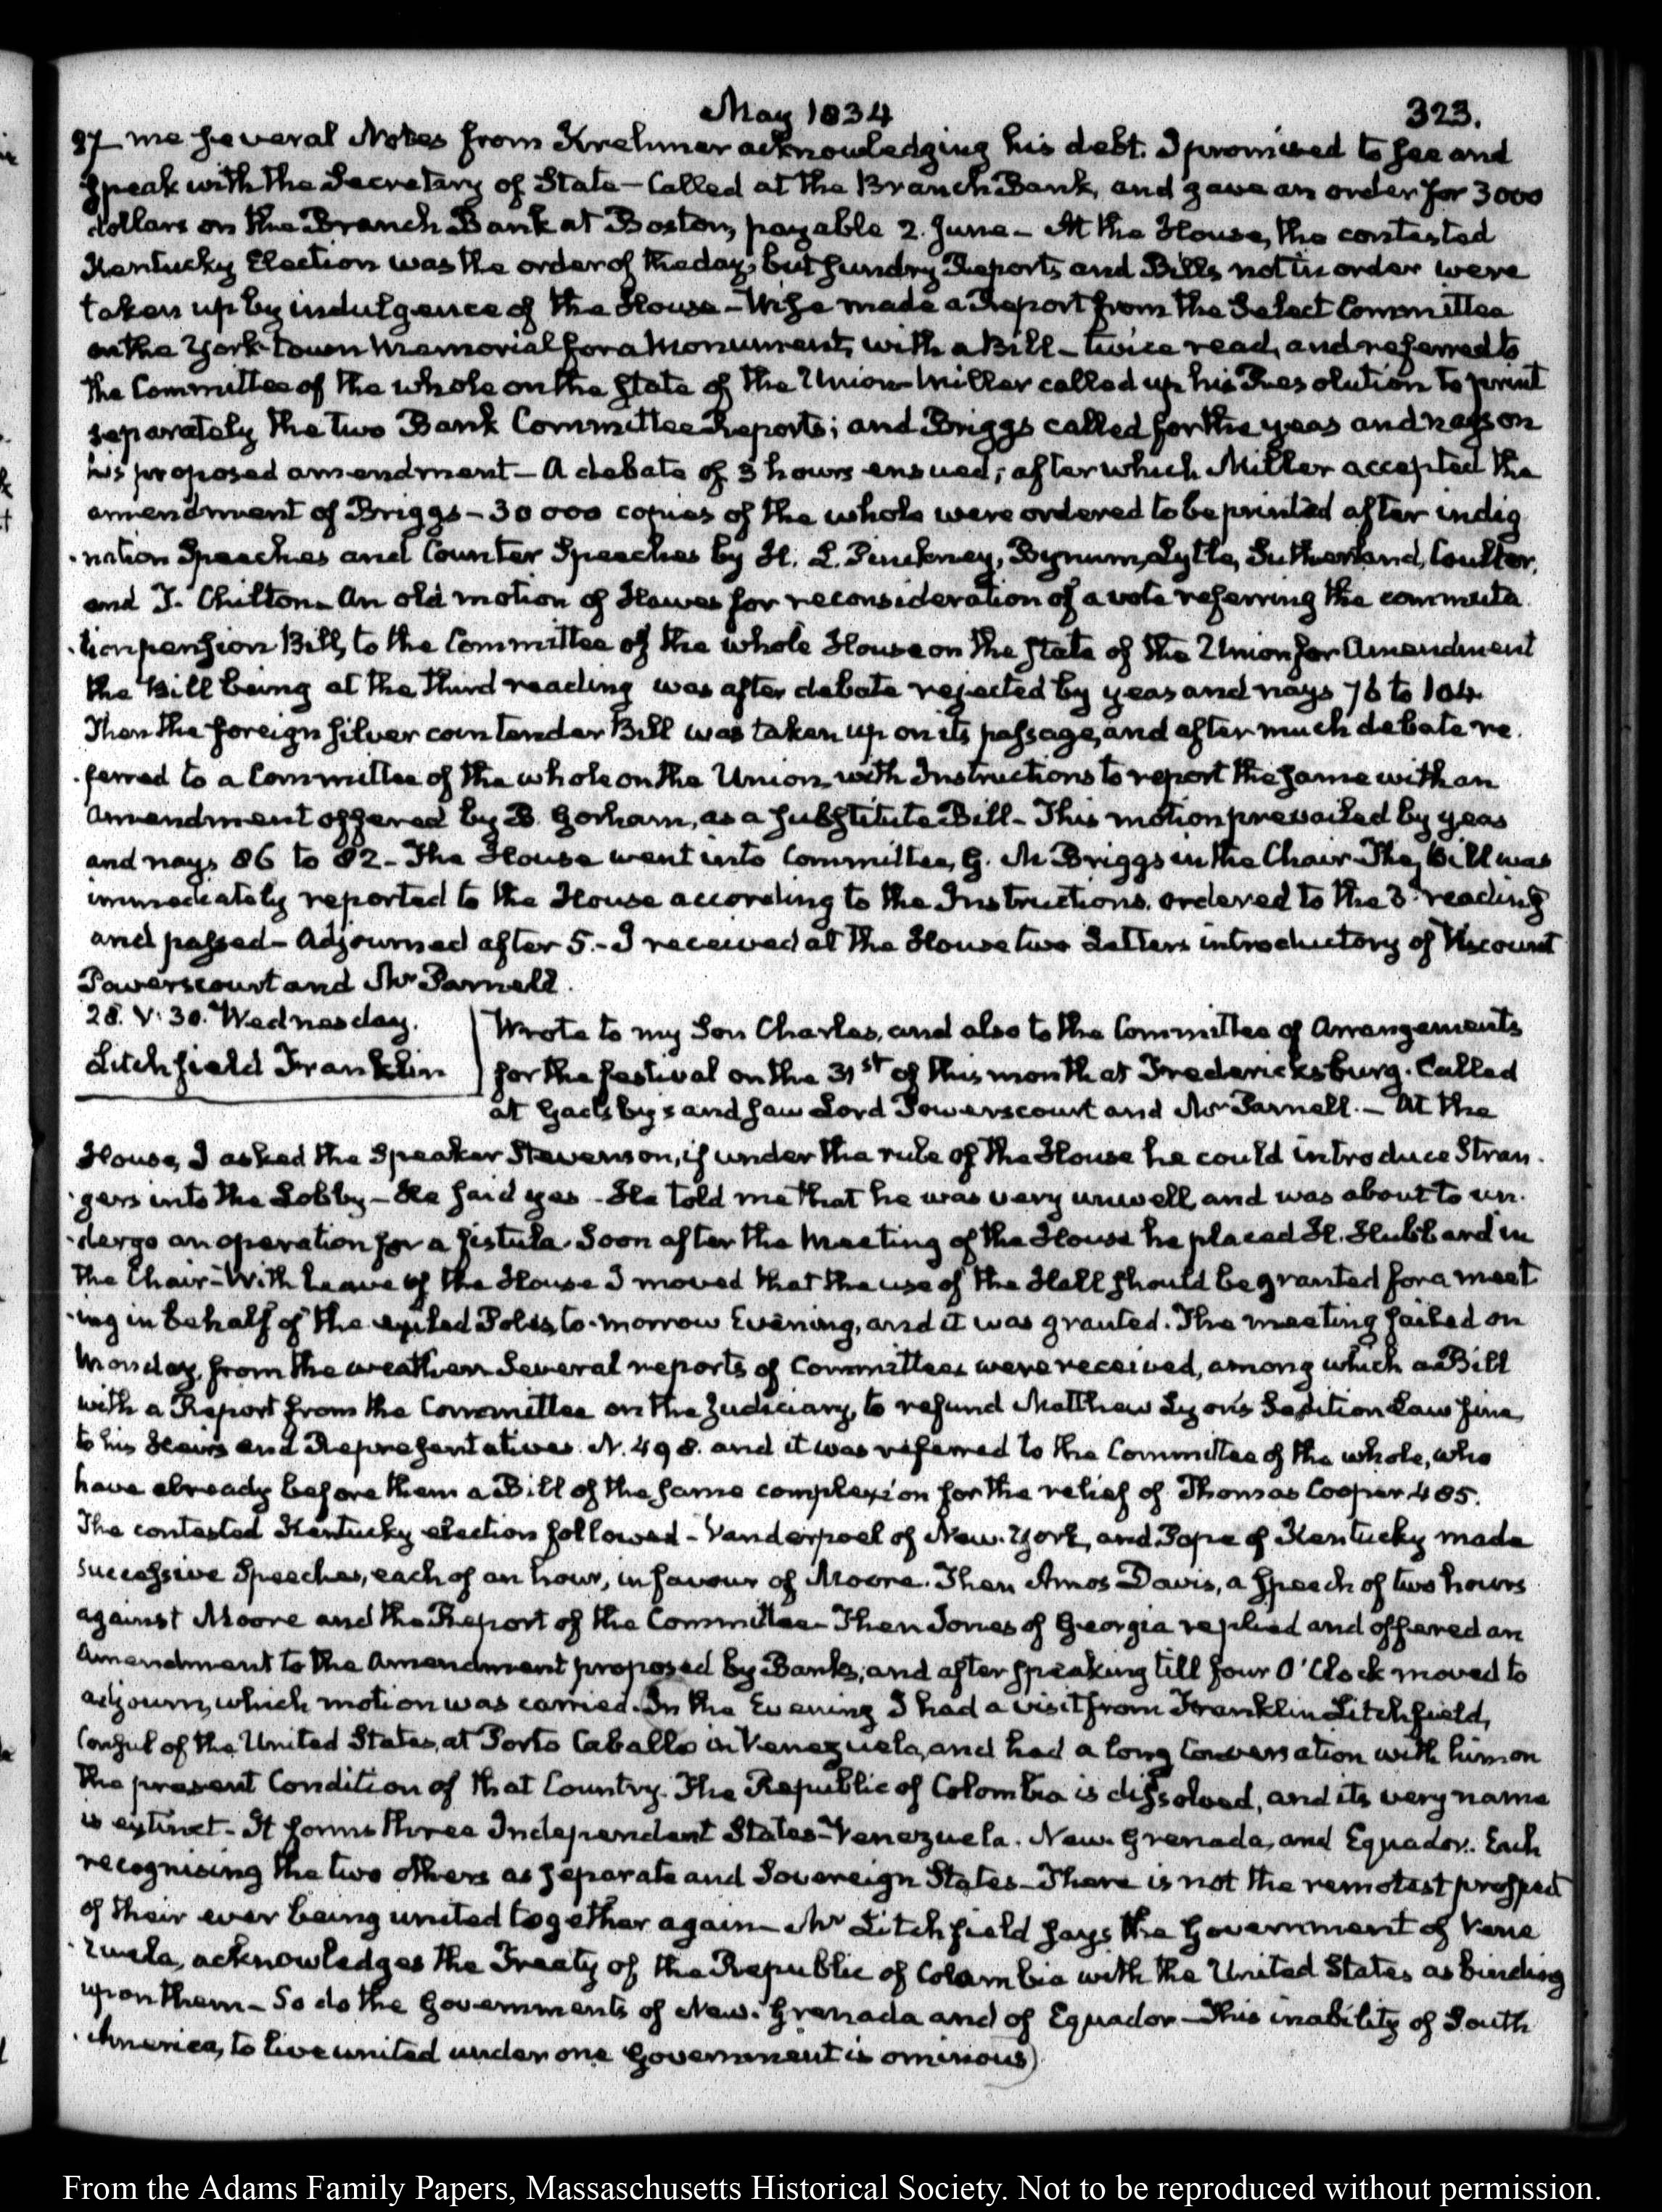 May 1834
323.
27 me several Notes from Krehmer acknowledging his debt. I promised to see and
speak with the Secretary of State — Called at the Branch Bank, and gave an order for 3000
dollars on the Branch Bank at Boston, payable 2. June — At the House, the contested
Kentucky Election was the order of the day, but sundry Reports and Bills not in order were
taken up by indulgence of the House — Wise made a Report from the Select Committee
on the York-town Memorial for a Monument, with a Bill — twice read, and referred to
the Committee of the whole on the state of the Union — Miller called up his Resolution to print
separately the two Bank Committee Reports; and Briggs called for the yeas and nays on
his proposed amendment — A debate of 3 hours ensued; after which Miller accepted the
amendment of Briggs — 30000 copies of the whole were ordered to be printed after indig
-nation Speeches and Counter Speeches by H. L. Pinckney, Bynum, Lytle, Sutherland, Coulter,
and T. Chilton — An old motion of Hawes for reconsideration of a vote referring the commuta
-tion pension Bill, to the Committee of the whole House on the state of the Union for Amendment
the Bill being at the third reading was after debate rejected by yeas and nays 76 to 104.
Then the foreign silver coin tender Bill was taken up on its passage, and after much debate re.
-ferred to a Committee of the whole on the Union, with Instructions to report the same with an
Amendment offered by B. Gorham, as a substitute Bill — This motion prevailed by yeas
and nays 86 to 82 — The House went into Committee, G. N. Briggs in the Chair — The Bill was
immediately reported to the House according to the Instructions. ordered to the 3d. reading
and passed — Adjourned after 5. — I received at the House two Letters introductory of Viscount
Powerscourt and Mr Parnell.
28. V. 30. Wednesday.
Litchfield Franklin
Wrote to my Son Charles, and also to the Committee of Arrangements
for the festival on the 31st of this month at Fredericksburg. Called
at Gadsby's and saw Lord Powerscourt and Mr Parnell. — At the
House, I asked the Speaker Stevenson, if under the rule of the House he could introduce Stran.
-gers into the Lobby — He said yes — He told me that he was very unwell, and was about to un.
-dergo an operation for a fistula. Soon after the Meeting of the House he placed H. Hubbard in
the Chair — With leave of the House I moved that the use of the Hall should be granted for a meet
-ing in behalf of the exiled Poles, to-morrow Evening, and it was granted. The meeting failed on
Monday, from the weather. Several reports of Committees were received, among which a Bill
with a Report from the Committee on the Judiciary, to refund Matthew Lyon's Sedition Law fine,
to his Heirs and Representatives. N. 498. and it was referred to the Committee of the whole, who
have already before them a Bill of the same complexion for the relief of Thomas Cooper 485.
The contested Kentucky election followed — Vanderpoel of New-York, and Pope of Kentucky made
successive Speeches, each of an hour, in favour of Moore. Then Amos Davis, a speech of two hours
against Moore and the Report of the Committee — Then Jones of Georgia replied and offered an
Amendment to the Amendment proposed by Banks, and after speaking till four O'Clock moved to
adjourn, which motion was carried. In the Evening I had a visit from Franklin Litchfield,
Consul of the United States, at Porto Caballo in Venezuela, and had a long Conversation with him on
the present Condition of that Country. The Republic of Colombia is dissolved, and its very name
is extinct — It forms three Independent States — Venezuela. New-Grenada, and Equador. Each
recognising the two others as separate and Sovereign States — There is not the remotest prospect
of their ever being united together again — Mr Litchfield says the Government of Vene
-zuela, acknowledges the Treaty of the Republic of Colombia with the United States as binding
upon them — So do the Governments of New-Grenada and of Equador — This inability of South
-America, to live united under one Government is ominous)
From the Adams Family Papers, Massachusetts Historical Society. Not to be reproduced without permission.